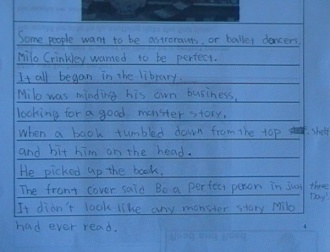 Some people want to be astronauts, or ballet dancers,
Milo Crinkley wanted to be perfect.
It all began in the library.
Milo was minding his own business,
looking for a good monster story,
when a book tumbled down from the top shelf
and hit him on the head.
He picked up the book.
The front cover said Be a Perfect person in Just three Days.
It didn't look like any monster story Milo
had ever read.